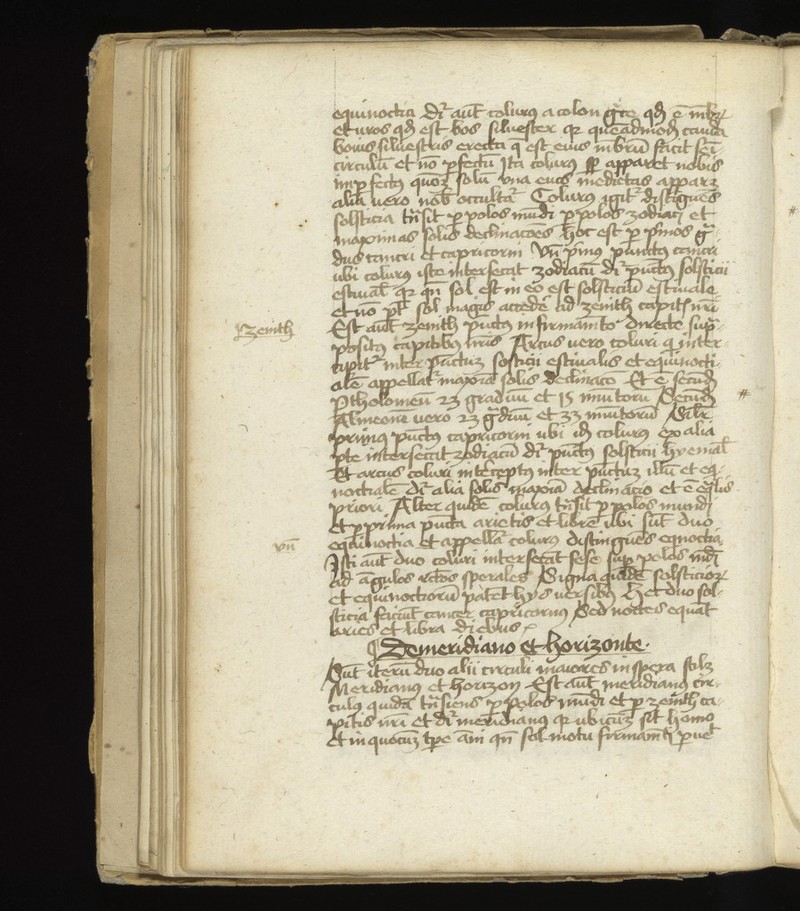 equinoctia Dr̄ aut̄ colurꝰ a colon g̃ce qd̄ ē mbꝝ
et uros qd̄ est bos siluester qr̄ queadmod̄ cauda
bouis siluestris erecta q̄ est eius mbrū facit semi
circulū et nō ꝑfectū Ita colurꝰ sꝑ apparet nobis
imꝑfectꝰ quoꝫ solū vna eiꝰ medietas apparꝫ
alia vero nob̄ occultat̄ Colurꝰ igit̄ distīguēs
solsticia trāsit ꝑ polos mūdi ꝑ polos zodiaci et
maximas solis declinacoēs hoc est ꝑ pͥmos gͣ-
dus cancri et capricorni Vn̄ pͥmꝰ punctꝰ cancri
ubi colurꝰ iste intersecat zodiacū dr̄ pūctꝰ solsticii
estiual̄ qr̄ qn̄ sol est in eo est solsticiū estiuale
et nō pt̄ sol magis accedē ad zenith capitꝭ nr̄i
Est aut̄ zenith pūctꝰ in firmamēto directe suꝑ-
positꝰ capitibꝰ nr̄is Arcus vero coluri q̄ inter-
cipit̄ inter pūctuꝫ solsticii estiualis et equinocti-
alē appellat̄ maxīa solis declinacō Et ē secūdū
Ptholomeū 23 graduū et 15 minutoru Secūdū
Almeonē vero 23 gͣduū et 33 minutorū Silr̄
primus pūctꝰ capricorni ubi id̄ colurꝰ ex alia
ꝑte intersecat zodiacū dr̄ pūctꝰ solsticii hyemal̄
Et arcus coluri intēceptꝰ inter pūctuꝫ illū et eq̄-
noctialē dr̄ alia solis maxīa declinacio et ē eq̄lis
priori Alter quidē colurꝰ trāsit ꝑ polos mundi
et ꝑ prima pūcta arietis et libre ubi sūt duo
equinoctia et appellat̄ colurꝰ distinguēs eq̄noctia
Isti aut̄ duo coluri intersecāt sese suꝑ polos mūdi
ad āgulos rc̄tos sperales Signa quidē solsticioꝝ
et equinoctiorū patēt hijs versibꝰ Hec duo sol-
sticia faciūt cancer capricornus Sed noctes equāt
aries et libra diebus
¶ De meridiano et horizonte.
Sūt iterū duo alii circuli maiores in spera scilꝫ
Meridianus et horizon Est aut̄ meridianꝰ cir-
culꝰ quidā trāsiens ꝑ polos mūdi et ꝑ zenith ca-
pitis nr̄i et dr̄ meridianꝰ qr̄ ubicūꝫ sit homo
et in quocūꝫ tꝑe āni qn̄ sol motu firmamēti ꝑuēt
zenith
vn̄